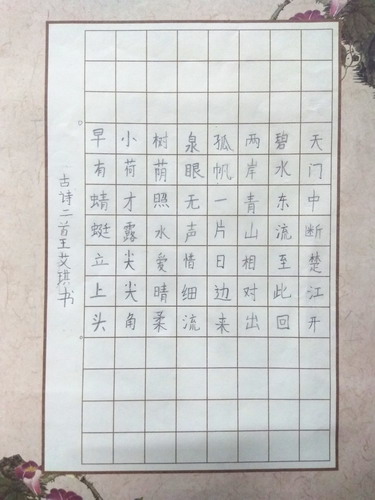 天门中断楚江开
碧水东流至此回
两岸青山相对出
孤帆一片日边来
泉眼无声惜细流
树荫照水爱晴柔
小荷才露尖尖角
早有蜻蜓立上头
古诗二首王艾琪书